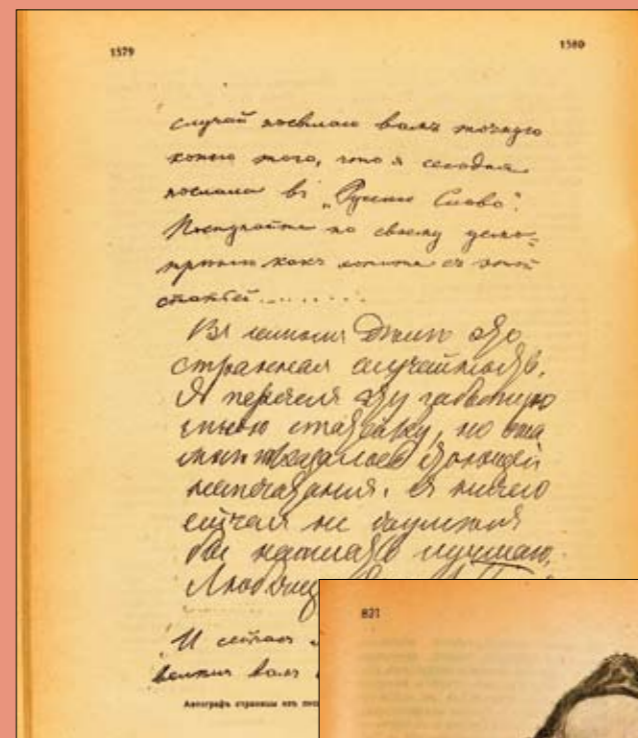 1579
1580
случай посылаю вамъ точную
копію того, что я сегодня
послала въ „Русское Слово".
Поступайте по своему усмо-
трѣнію какъ хотите съ этой
статьей........
Въ самомъ дѣлѣ это
странная случайность.
Я перечелъ эту забытую
мною статейку, но она
мнѣ показалась стоющей
напечатанія. Я ничего
сейчасъ не
бы написать лучшаго.
821
И сейчас
вамъ
Автографъ страницы изъ